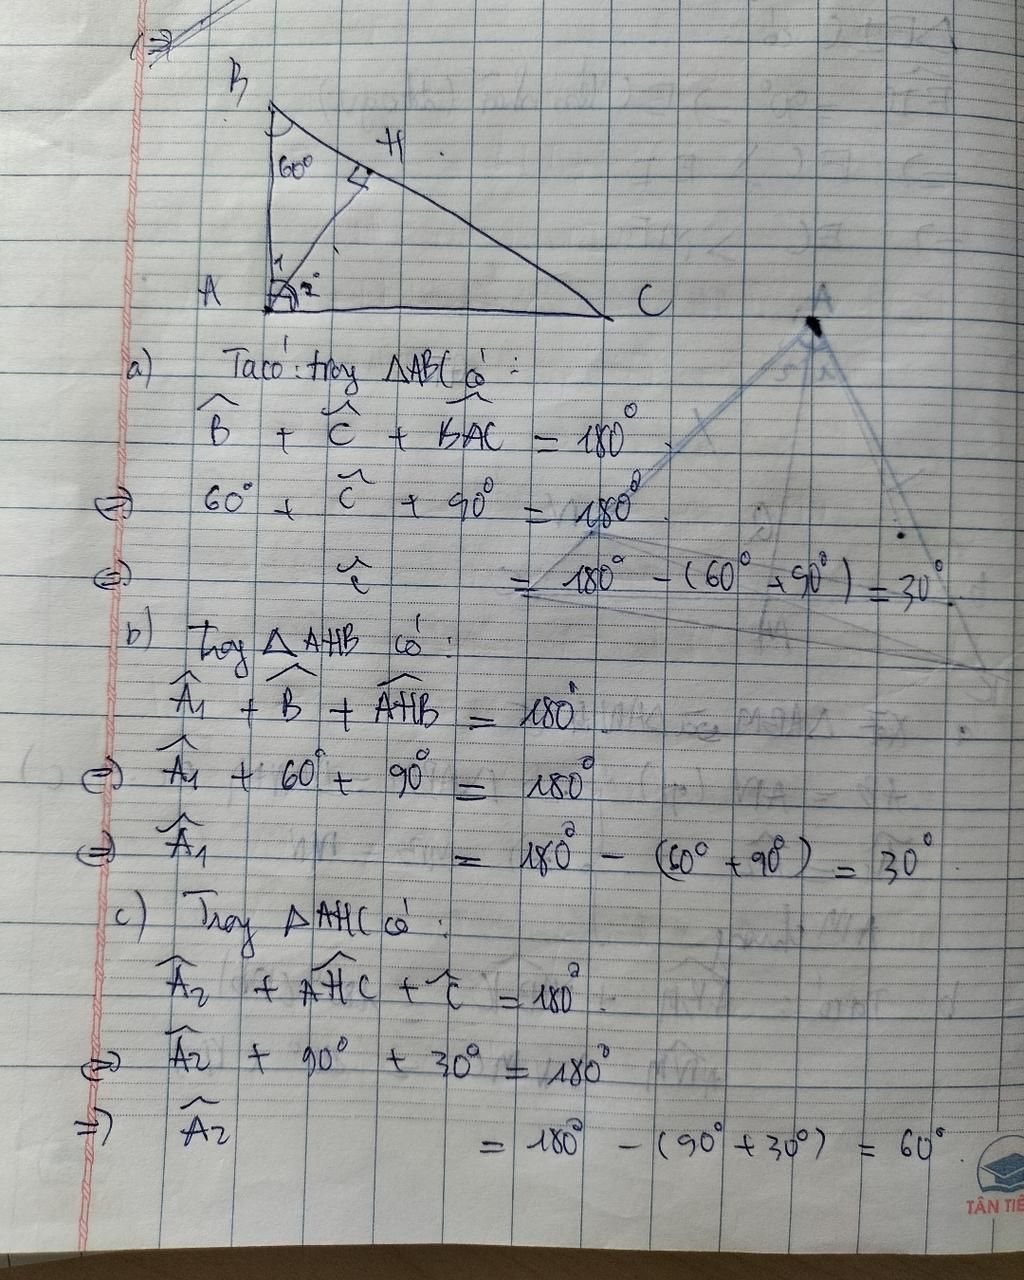 B
H
60°
1
A
2
C
A
a) Ta có: trong ΔABC có:
B̂ + Ĉ + B̂AC = 180°
⇔ 60° + Ĉ + 90° = 180°
⇔ Ĉ = 180° - (60° + 90°) = 30°
b) Trong ΔAHB có:
Â1 + B̂ + ÂHB = 180°
⇔ Â1 + 60° + 90° = 180°
⇔ Â1 = 180° - (60° + 90°) = 30°.
c) Trong ΔAHC có:
Â2 + ÂHC + Ĉ = 180°.
⇔ Â2 + 90° + 30° = 180°
⇒ Â2 = 180° - (90° + 30°) = 60°.
TÂN TIẾ